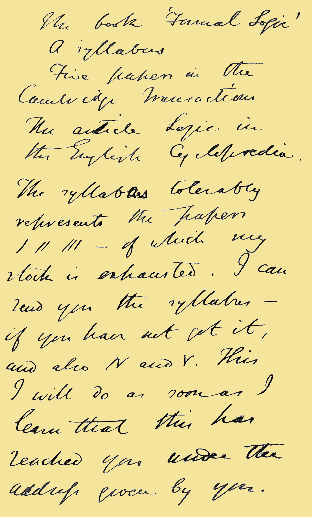 The book 'Formal Logic'
A syllabus
Five papers in the
Cambridge Transactions
The article Logic in
the English Cyclopædia.
The syllabus tolerably
represents the papers
I II III – of which my
stock is exhausted. I can
send you the syllabus –
if you have not got it,
and also IV and V. This
I will do as soon as I
learn that this has
reached you under the
address given by you.